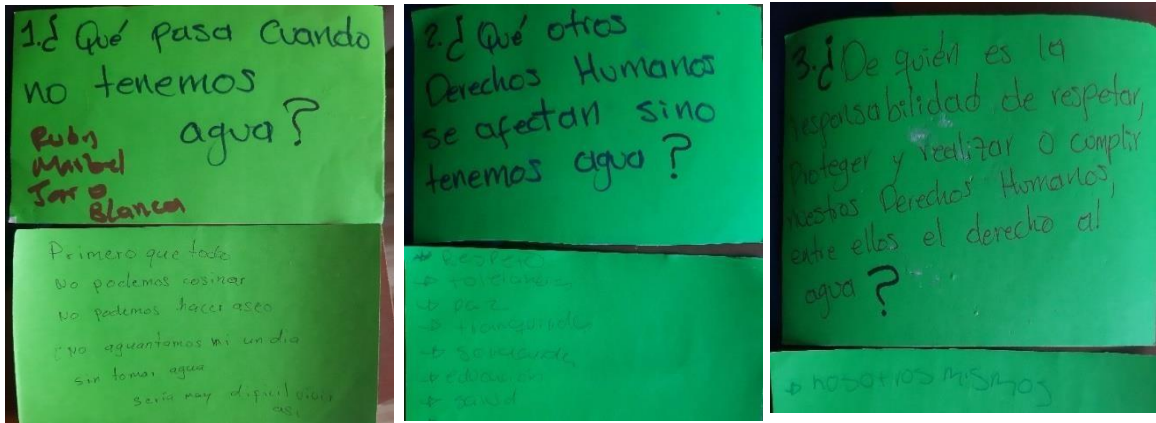 1.¿ Qué pasa cuando
no tenemos
agua?
Rubn
Maribel
Jar
Blanca
Primero que todo
No podemos cosinar
No podemos hacer aseo
No aguantamos ni un dia
sin tomar agua
seria muy dificil vivir
asi
2.¿ Qué otros
Derechos Humanos
se afectan sino
tenemos agua?
Respeto
tolerancia
paz
educación
salud
3.¿De quién es la
responsabilidad de respetar,
proteger y realizar o cumplir
nuestros Derechos Humanos,
entre ellos el derecho al
agua?
nosotros mismos